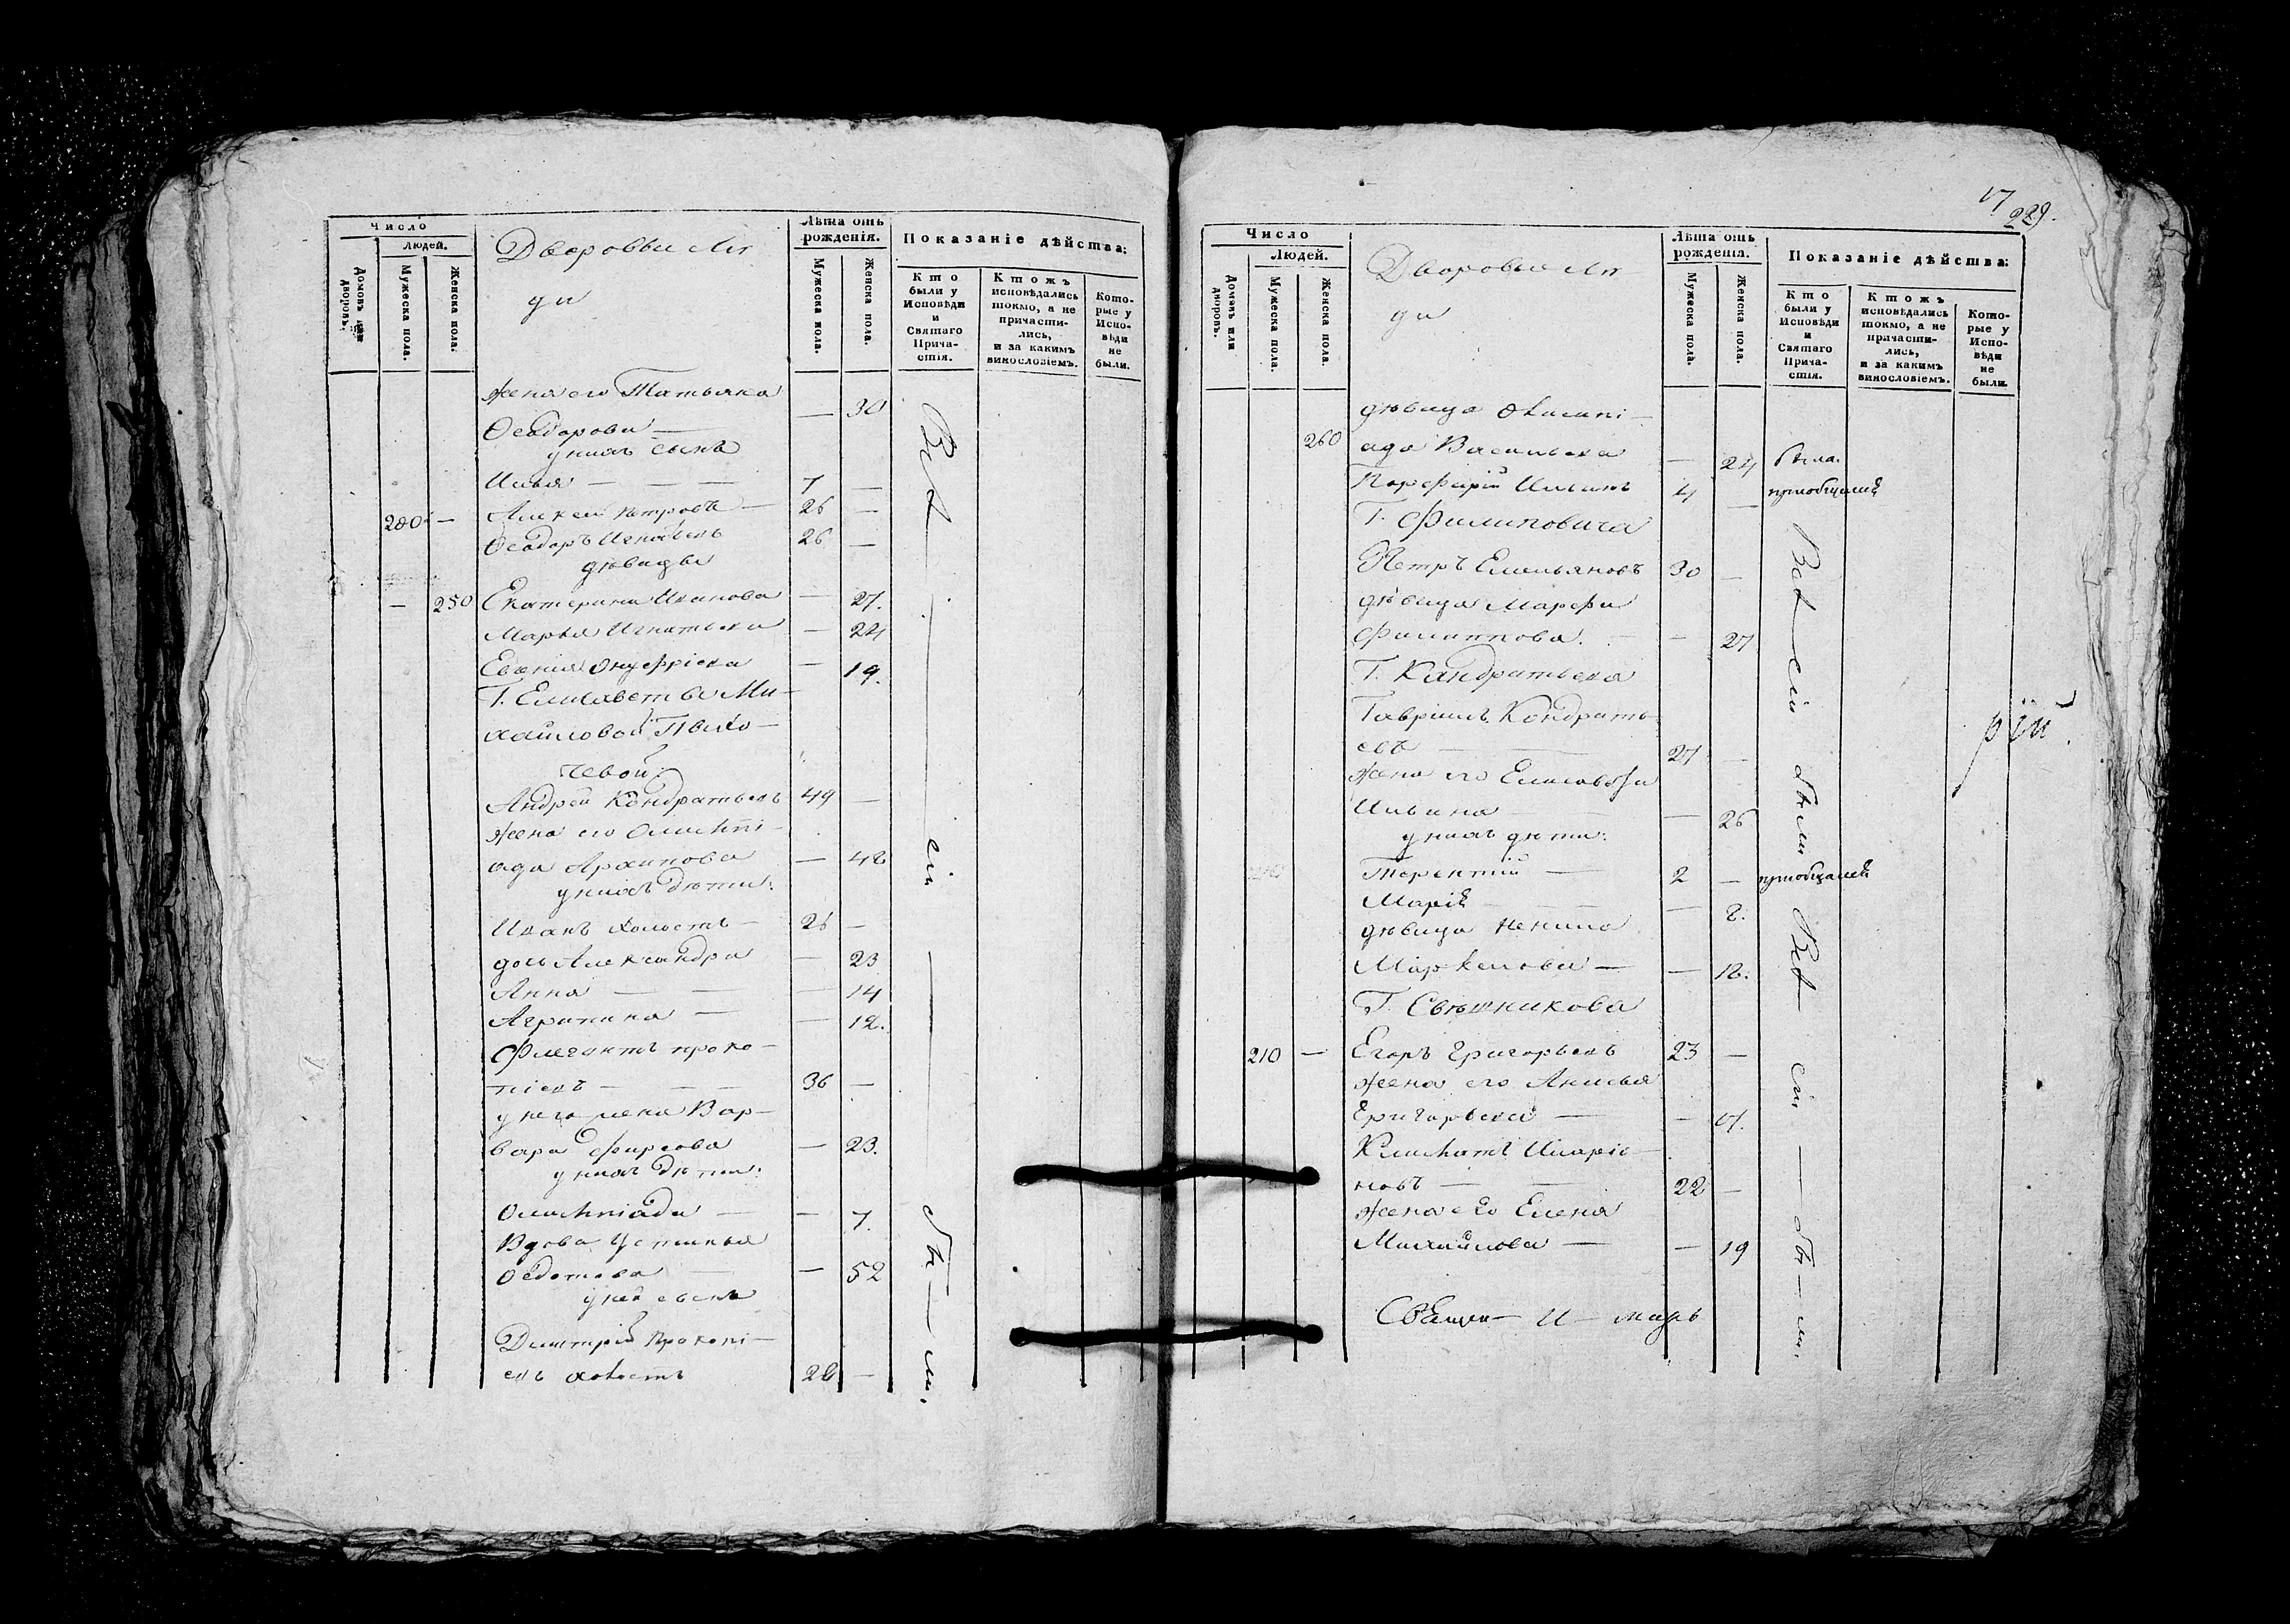 Число
Людей.
Домовъ или дворовъ.
Мужеска пола.
Женска пола.
Дворовыи лю
ди
Лѣта отъ рожденія.
Мужеска пола.
Женска пола.
Показаніе дѣйства:
Кто были у Исповѣди и Святаго Прича-стія.
Ктожъ исповѣдались токмо, а не причасти-лись, и за какимъ винословіемъ.
Кото-рые у Испо-вѣди не были.
жена его Татьяна
Ѳеодорова — — 30
у нихъ сынъ
Илья — — — 7 —
200 — Алексей Петровъ — 26 —
Ѳеодоръ Игнатьевъ 26 —
дѣвицы
— 250 Екатерина Иванова — 27.
Марья Игнатьева — 24
Евгенія Онуфріева — 19.
Г. Елисаветы Ми-
хайловой
чевой
Андрей Кондратьевъ 49 —
жена его Олимпі-
ада Архипова — 48
у нихъ дѣти:
Иванъ холостъ — 26 —
дочь Александра — 23
Анна — — — 14
Агрипина — — 12.
Флегонтъ Проко-
піевъ — — — 36 —
у него жена Вар-
вара Фирсова — 23.
у нихъ дѣти:
Олимпіада — — 7.
Вдова Устинья
Ѳедотова — — 52
у ней сынъ
Димитрій Прокопі-
евъ холостъ 28 —
Всѣ — сіи — бы — ли.
17
229.
Число
Людей.
Домовъ или дворовъ.
Мужеска пола.
Женска пола.
Дворовыи лю
ди
Лѣта отъ рожденія.
Мужеска пола.
Женска пола.
Показаніе дѣйства:
Кто были у Исповѣди и Святаго Прича-стія.
Ктожъ исповѣдались токмо, а не причасти-лись, и за какимъ винословіемъ.
Кото-рые у Испо-вѣди не были.
дѣвица Олимпі-
260 ада Васильева — 24 была.
Порфирій Ильинъ 4 —
Г. Филиповича
Петръ Емельяновъ 30 —
дѣвица Марфа
Филиппова. — — 27
Г. Кандратьева
Гавріилъ Кондрать-
евъ — — 27 —
жена его
Ильина — — 26
у нихъ дѣти:
Терентій — 2 —
Марія — — — 8.
дѣвица Ненила
Маркелова — — 18.
Г. Свѣшникова
210 — Егоръ Григорьевъ 23 —
жена его Анисья
Григорьева — — 17.
Климентъ Иларіо-
новъ — — 22 —
жена его Елена
Михайлова — — 19
Всѣ — сіи были
Всѣ — сіи — бы — ли.
рій